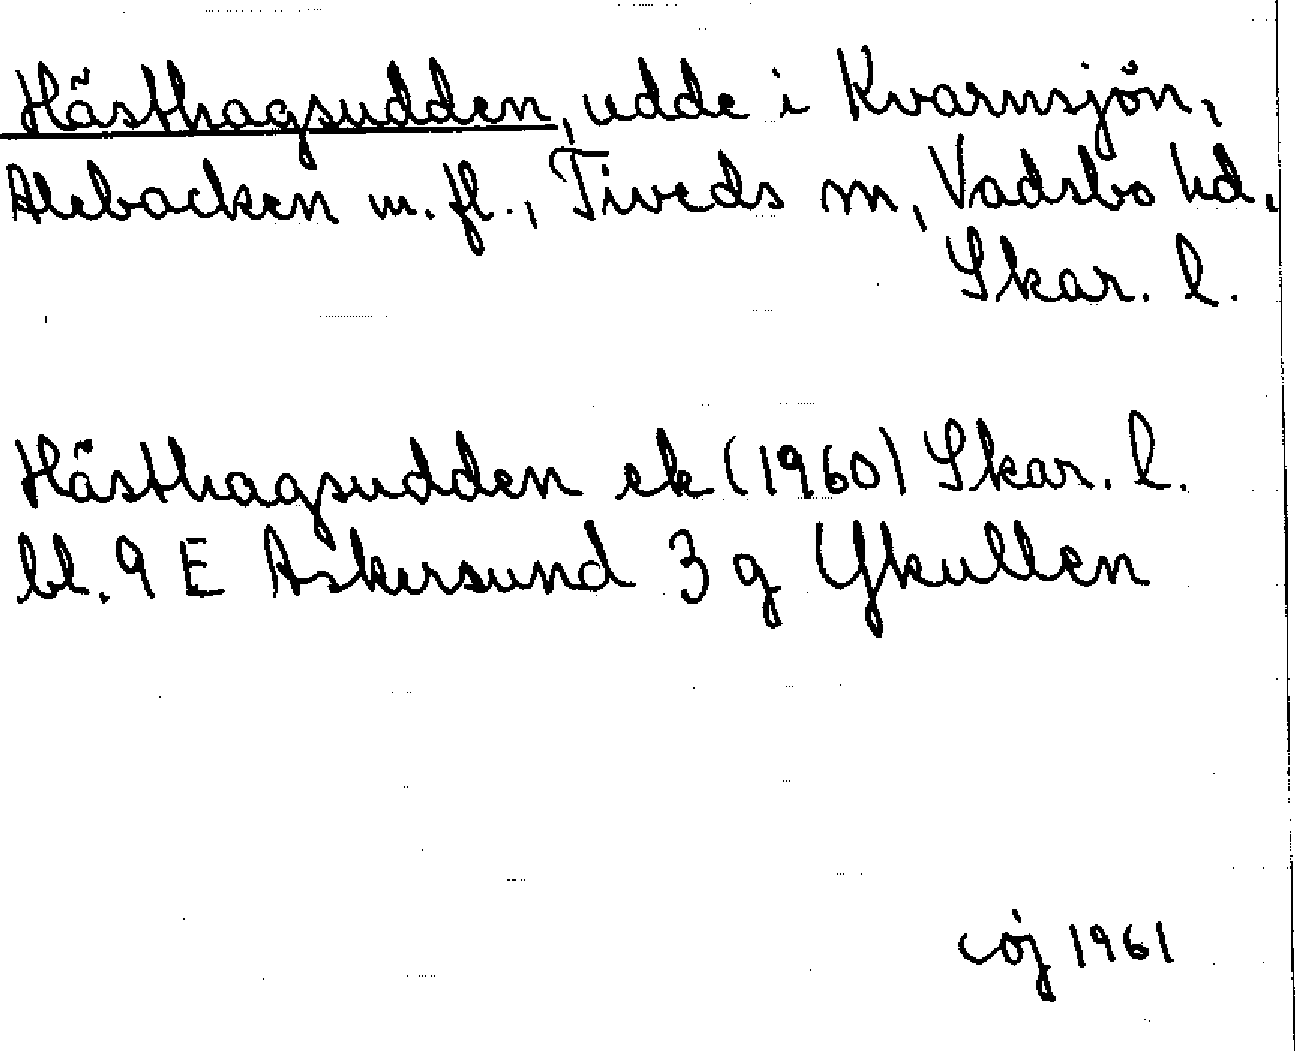 Hästhagsudden, udde i Kvarnsjön,
Alebacken m. fl., Tiveds sn, Vadsbo hd,
Skar. l.
Hästhagsudden ek (1960) Skar. l.
bl. 9 E Askersund 3 g Ykullen
cöj 1961